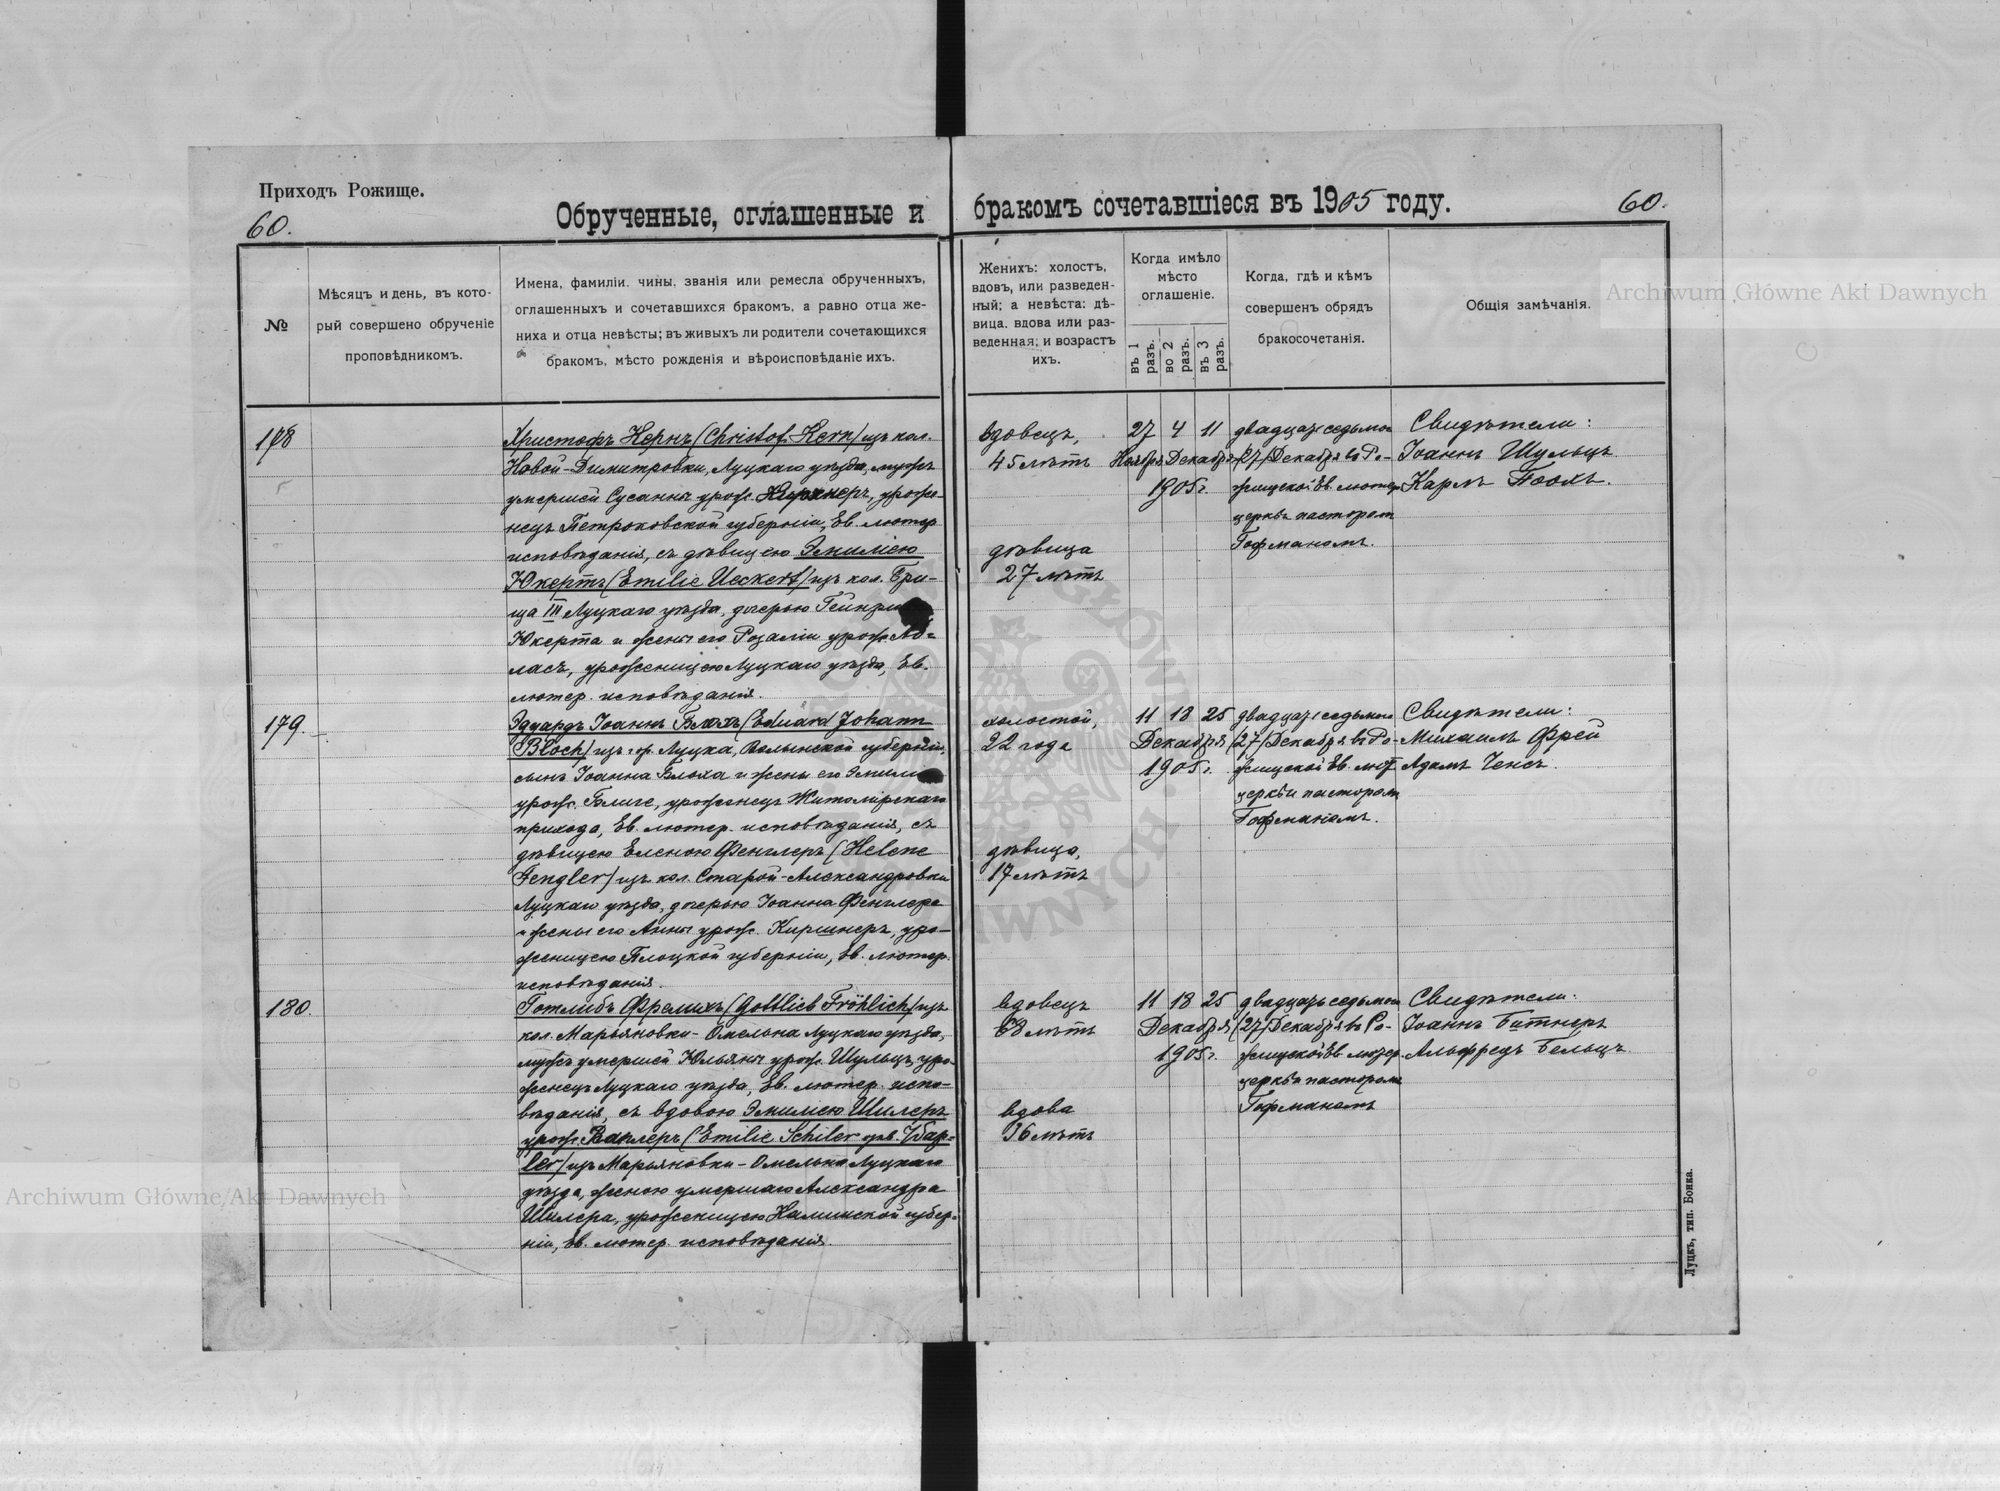 Приходъ Рожище.
60.
Обрученные, оглашенные и бракомъ сочетавшіеся въ 1905 году.
60.
№
Мѣсяцъ и день, въ кото-
рый совершено обрученіе
проповѣдникомъ.
Имена, фамиліи. чины, званія или ремесла обрученныхъ,
оглашенныхъ и сочетавшихся бракомъ, а равно отца же-
ниха и отца невѣсты; въ живыхъ ли родители сочетающихся
бракомъ, мѣсто рожденія и вѣроисповѣданіе ихъ.
Женихъ: холостъ,
вдовъ, или разведен-
ный; а невѣста: дѣ-
вица. вдова или раз-
веденная; и возрастъ
ихъ.
Когда имѣло
мѣсто
оглашеніе.
въ 1 разъ.
во 2 разъ.
въ 3 разъ.
Когда, гдѣ и кѣмъ
совершенъ обрядъ
бракосочетанія.
Общія замѣчанія.
178
Христофъ Кернъ (Christof Kern) изъ кол.
Новой-Димитровки, Луцкаго уѣзда, мужъ
умершей Сусанны урож. Киршнеръ, уроже-
нецъ Петроковской губерніи, Ев. лютер
исповѣданія, съ дѣвицею Эмиліею
Юкертъ (Emilie Ueckert) изъ кол.
ща III Луцкаго уѣзда, дочерью
Юкерта и жены его Розаліи урож.
ласъ, уроженицею Луцкаго уѣзда, Ев.
лютер. исповѣданія.
вдовецъ,
45 лѣтъ
дѣвица
27 лѣтъ
27 4 11
Ноября Декабря
1905 г.
двадцать седьмого
(27) Декабря въ Ро-
жищской Ев. лютер
церкви пасторомъ
Гофманомъ.
Свидѣтели:
Іоаннъ Шульцъ
Карлъ Поохъ.
179.
Эдуардъ Іоаннъ Блохъ (Eduard Johann
Bloch) изъ гор. Луцка, Волынской губерніи,
сынъ Іоанна Блоха и жены его Эмиліи
урож. Блиге, уроженецъ Житомірскаго
прихода, Ев. лютер. исповѣданія, съ
дѣвицею Еленою Фенглеръ (Helene
Fengler) изъ кол. Старой-Александровки
Луцкаго уѣзда, дочерью Іоанна Фенглера
и жены его Анны урож. Киршнеръ, уро-
женицею Плоцкой губерніи, Ев. лютер.
исповѣданія.
холостой,
22 года
дѣвица,
17 лѣтъ
11 18 25
Декабря
1905 г.
двадцать седьмого
(27) Декабря въ Ро-
жищской Ев. лют
церкви пасторомъ
Гофманомъ.
Свидѣтели:
Михаилъ Фрей
Адамъ Ченсъ.
180.
Готлибъ Фрелихъ (Gottlieb Fröhlich) изъ
кол. Марьяновки-Омельна Луцкаго уѣзда,
мужъ умершей Юльяны урож. Шульцъ, уро-
женецъ Луцкаго уѣзда, Ев. лютер. испо-
вѣданія, съ вдовою Эмиліею Шилеръ
урож. (Emilie Schiler
изъ Марьяновки-Омельна Луцкаго
уѣзда, женою умершаго Александра
Шилера, уроженицею Калишской губер-
ніи, Ев. лютер. исповѣданія.
вдовецъ
68 лѣтъ
вдова
36 лѣтъ
11 18 25
Декабря
1905 г.
двадцать седьмого
(27) Декабря въ Ро-
жищской Ев. лютер.
церкви пасторомъ
Гофманомъ
Свидѣтели:
Іоаннъ Битнеръ
Альфредъ Бельцъ.
Луцкъ, тип. Бонка.
Archiwum Główne Akt Dawnych
Archiwum Główne Akt Dawnych